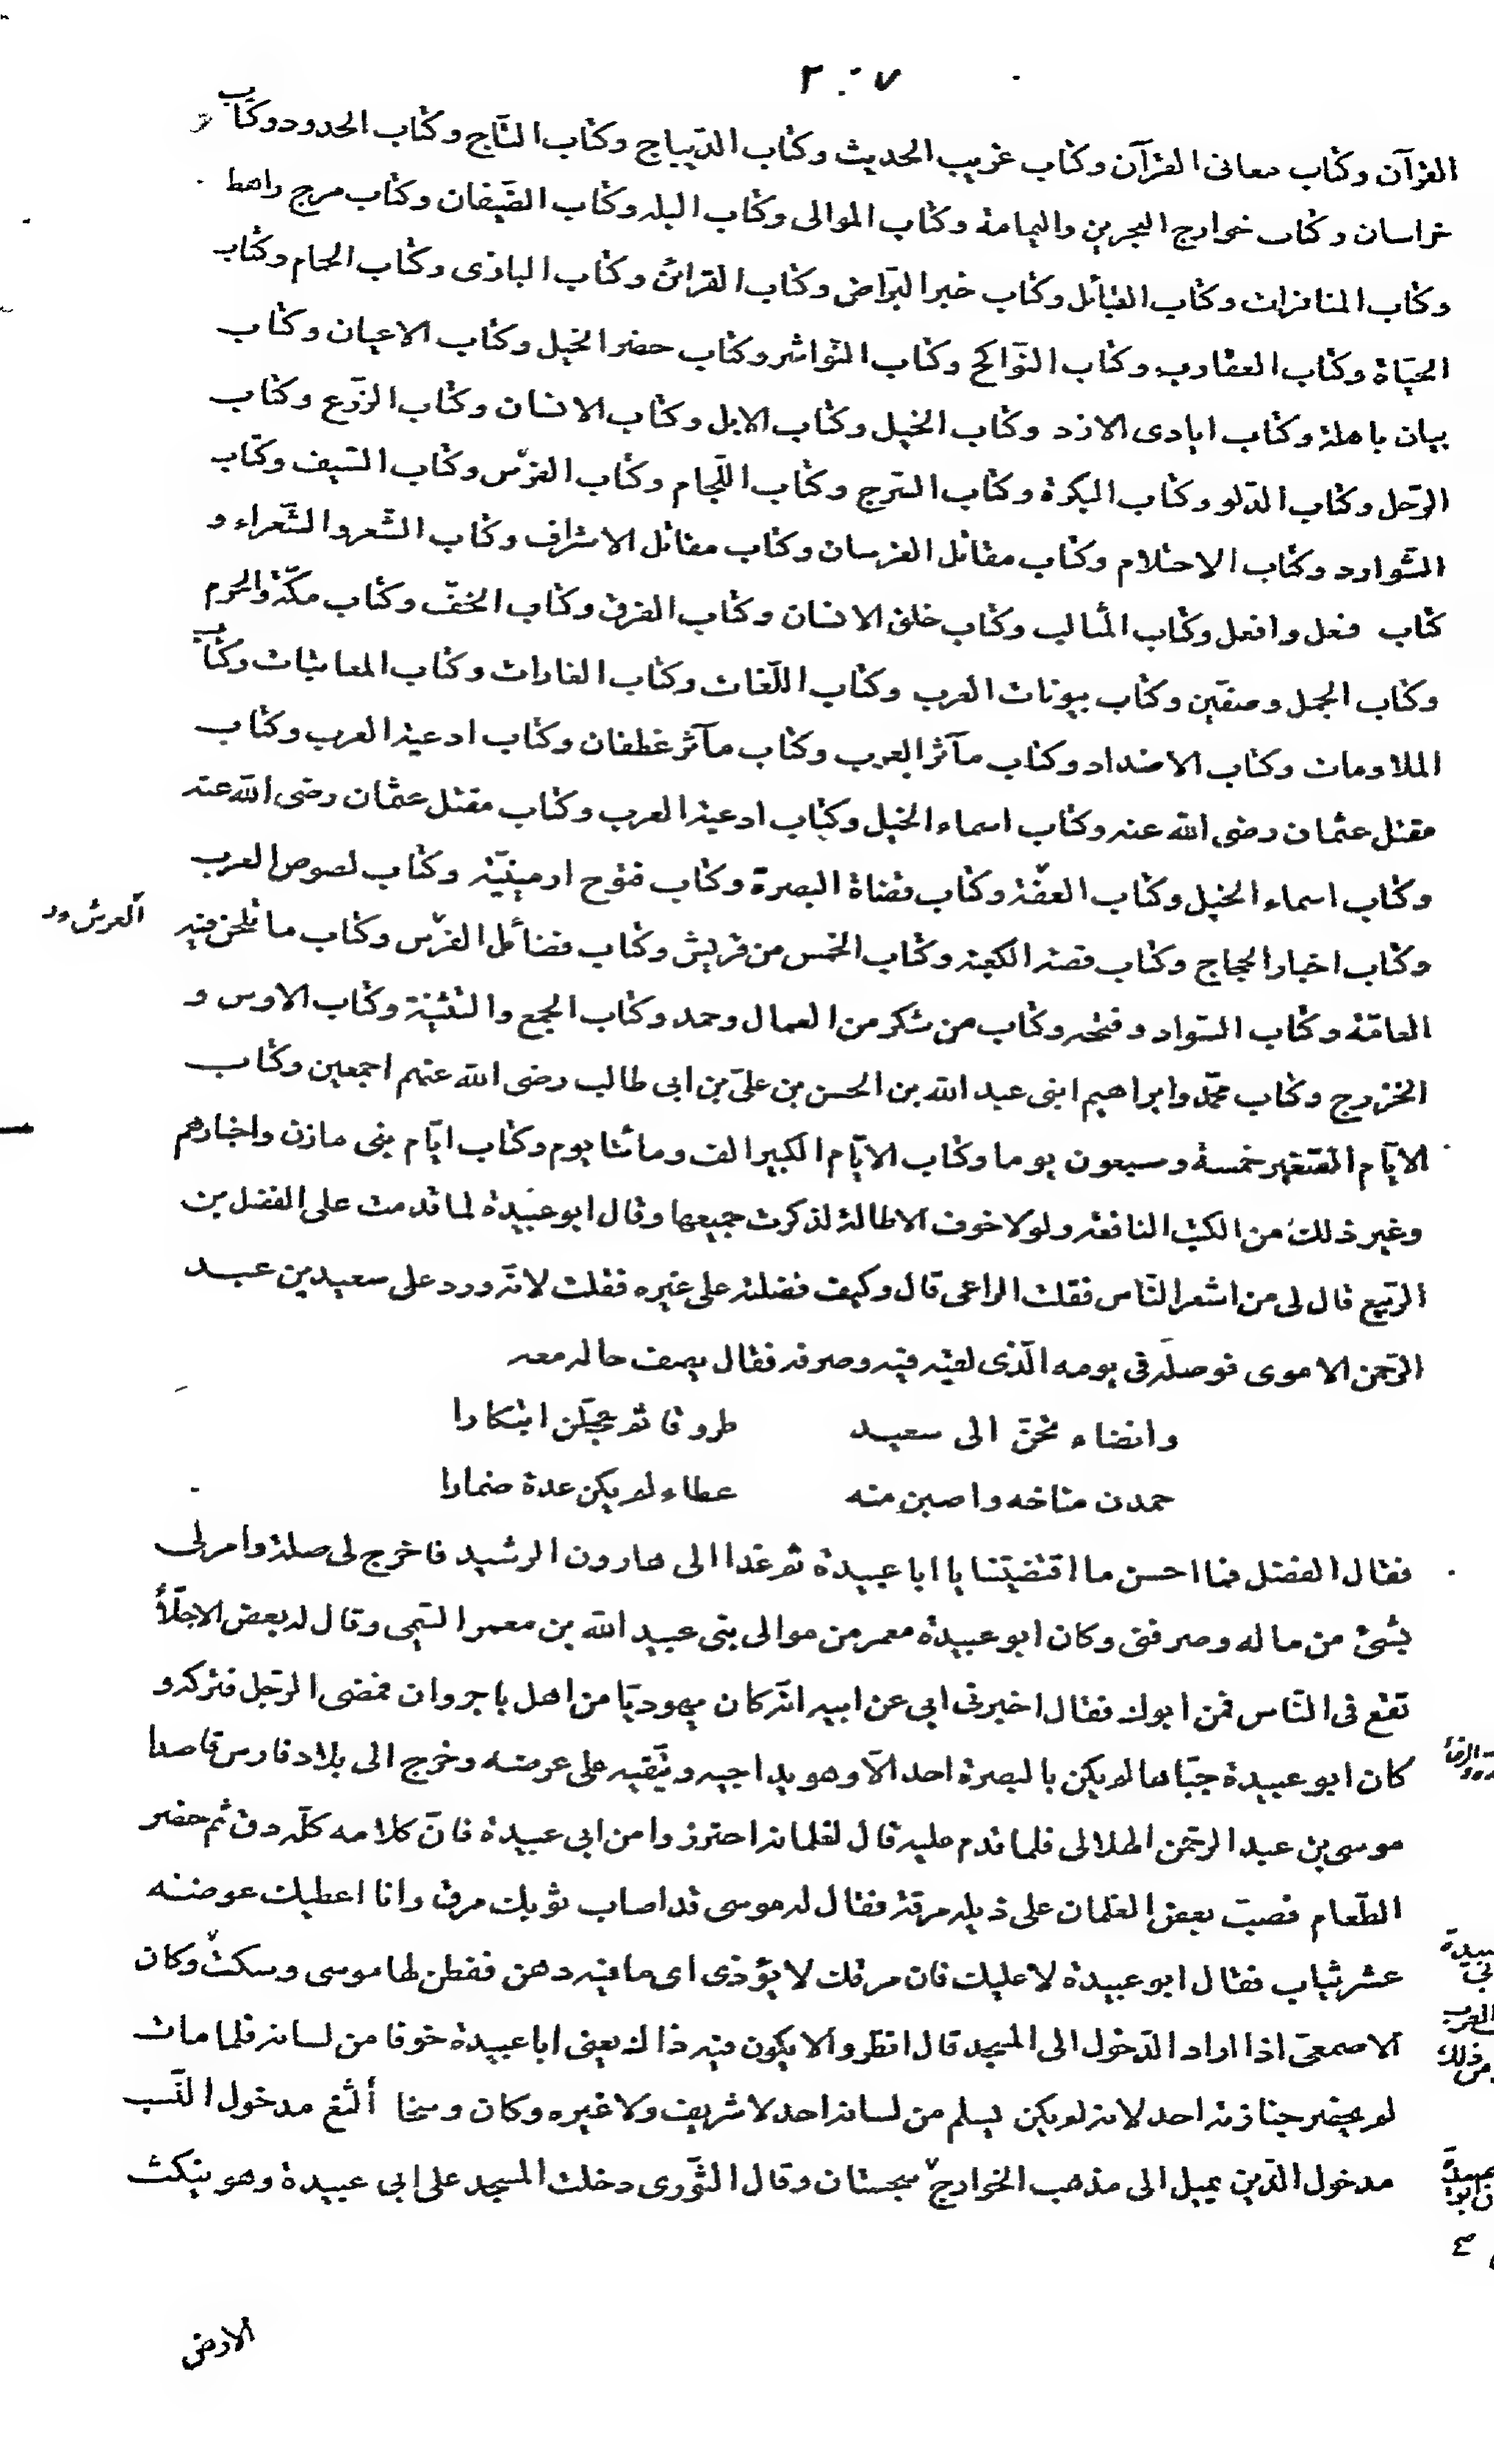 ٢٠٧
القرآن وكتاب معانى القرآن وكتاب غريب الحديث وكتاب الديباج وكتاب التّاج وكتاب الحدود وكتاب
خراسان وكتاب خوارج البحرين واليمامة وكتاب الموالى وكتاب البله وكتاب الضّيفان وكتاب مرج راهط
وكتاب المنافرات وكتاب القبائل وكتاب خبر البرّاض وكتاب القرائن وكتاب البازى وكتاب الحمام وكتاب
الحيّاة وكتاب العقارب وكتاب النّواكح وكتاب النّواشر وكتاب حضر الخيل وكتاب الاعيان وكتاب
بيان باهلة وكتاب ايادى الازد وكتاب الخيل وكتاب الابل وكتاب الانسان وكتاب الزّرع وكتاب
الرّحل وكتاب الدّلو وكتاب البكرة وكتاب السّرج وكتاب اللّجام وكتاب الفرس وكتاب السّيف وكتاب
الشّوارد وكتاب الاحتلام وكتاب مقاتل الفرسان وكتاب مقاتل الاشراف وكتاب الشّعر والشّعراء و
كتاب فعل وافعل وكتاب المثالب وكتاب خلق الانسان وكتاب الفرق وكتاب الخفّ وكتاب مكّة والحرم
وكتاب الجمل وصفّين وكتاب بيوتات العرب وكتاب اللّغات وكتاب الغارات وكتاب المعاتبات وكتاب
الملاومات وكتاب الاضداد وكتاب مآثر العرب وكتاب مآثر غطفان وكتاب ادعية العرب وكتاب
مقتل عثمان رضى الله عنه وكتاب اسماء الخيل وكتاب ادعية العرب وكتاب مقتل عثمان رضى الله عنه
وكتاب اسماء الخيل وكتاب العفّة وكتاب قضاة البصرة وكتاب فتوح ارمينيّة وكتاب لصوص العرب
وكتاب اخبار الحجاج وكتاب قصة الكعبة وكتاب الخمس من قريش وكتاب فضائل الفرس وكتاب ما تلحن فيه
العامّة وكتاب السّواد وفتحه وكتاب من شكر من العمال وحمد وكتاب الجمع والتثنية وكتاب الاوس و
الخزرج وكتاب محمّد وابراهيم ابنى عبد الله بن الحسن بن علىّ بن ابى طالب رضى الله عنهم اجمعين وكتاب
الايّام الصّغير خمسة وسبعون يوما وكتاب الايّام الكبير الف ومائتا يوم وكتاب ايّام بنى مازن واخبارهم
وغير ذلك من الكتب النافعة ولولا خوف الاطالة لذكرت جميعها وقال ابو عبيدة لما قدمت على الفضل بن
الرّبيع قال لى من اشعر النّاس فقلت الراعى قال وكيف فضلته على غيره فقلت لانّه ورد على سعيد بن عبد
الرّحمن الاموى فوصله فى يومه الّذى لقيه فيه وصرفه فقال يصف حاله معه
وانضاء نحنّ الى سعيد طروقا ثم عجّلن ابتكارا
حمدن مناخه واصبن منه عطاء لم يكن عدة ضمارا
فقال الفضل فما احسن ما اقتضيتنا يا ابا عبيدة ثم غدا الى هارون الرشيد فاخرج لى صلة وامر لى
بشئ من ماله وصرفنى وكان ابو عبيدة معمر من موالى بنى عبيد الله بن معمر التيمى وقال له بعض الاجلّاء
تقع فى النّاس فمن ابوك فقال اخبرنى ابى عن ابيه انّه كان يهوديّا من اهل باجروان فمضى الرّجل فتركه و
كان ابو عبيدة جبّاها لم يكن بالبصرة احد الّا وهو يداجيه ويتّقيه على عرضه وخرج الى بلاد فارس قاصدا
موسى بن عبد الرحمن الهلالى فلما قدم عليه قال لغلمانه احترزوا من ابى عبيدة فانّ كلامه كلّه دق ثم حضر
الطّعام فصبّ بعض الغلمان على ذيله مرقة فقال له موسى قد اصاب ثوبك مرق وانا اعطيك عوضه
عشر ثياب فقال ابو عبيدة لا عليك فان مرقك لا يؤذى اى ما فيه دهن ففطن لها موسى وسكت وكان
الاصمعىّ اذا اراد الدّخول الى المسجد قال انظروا لا يكون فيه ذاك يعنى ابا عبيدة خوفا من لسانه فلما مات
لم يحضر جنازته احد لانه لم يكن يسلم من لسانه احد لا شريف ولا غيره وكان وسخا ألثغ مدخول النّسب
مدخول الدّين يميل الى مذهب الخوارج سجستان وقال الثّورى دخلت المسجد على ابى عبيدة وهو ينكت
الارض